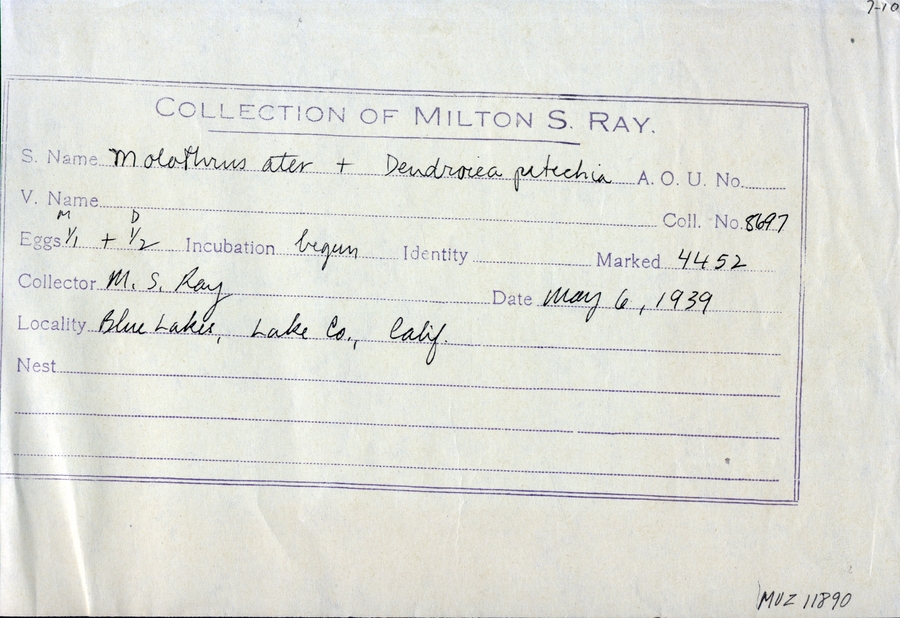 7-10
COLLECTION OF MILTON S. RAY.
S. Name Molothrus ater + Dendroica petechia A. O. U. No.
V. Name Coll. No. 8697
M D
Eggs 1/1 + 1/2 Incubation begun Identity Marked 4452
Collector M. S. Ray Date May 6, 1939
Locality Blue Lakes, Lake Co., Calif.
Nest
MVZ 11890